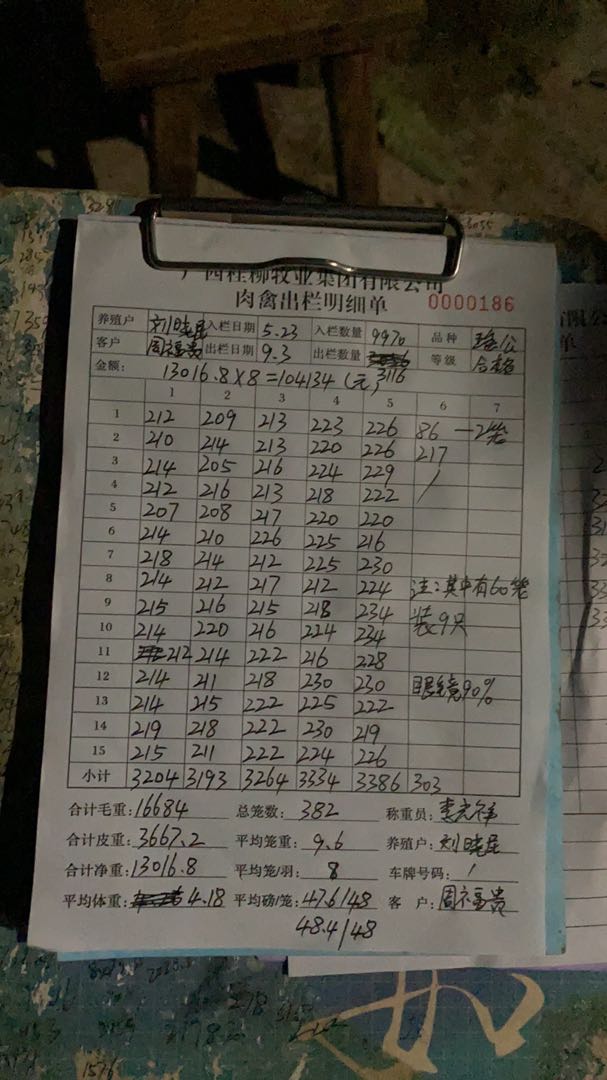 广西桂柳牧业集团有限公司
肉禽出栏明细单 0000186
养殖户 刘晓星 入栏日期 5.23 入栏数量 9970 品种 瑶公
客户 周福贵 出栏日期 9.3 出栏数量 3116 等级 合格
金额: 13016.8×8=104134(元)
1 2 3 4 5 6 7
1 212 209 213 223 226 86 一2笼
2 210 214 213 220 226 217
3 214 205 216 224 229 /
4 212 216 213 218 222
5 207 208 217 220 220
6 214 210 226 225 216
7 218 214 212 225 230
8 214 212 217 212 224 注:其中有60笼
9 215 216 215 218 234 装9只
10 214 220 216 224 234
11 212 214 222 216 228
12 214 211 218 230 230 眼镜90%
13 214 215 222 225 222
14 219 218 222 230 219
15 215 211 222 224 226
小计 3204 3193 3264 3334 3386 303
合计毛重: 16684 总笼数: 382 称重员:
合计皮重: 3667.2 平均笼重: 9.6 养殖户: 刘晓星
合计净重: 13016.8 平均笼/羽: 8 车牌号码: /
平均体重: 4.18 平均磅/笼: 47.6/48 客户: 周福贵
48.4/48